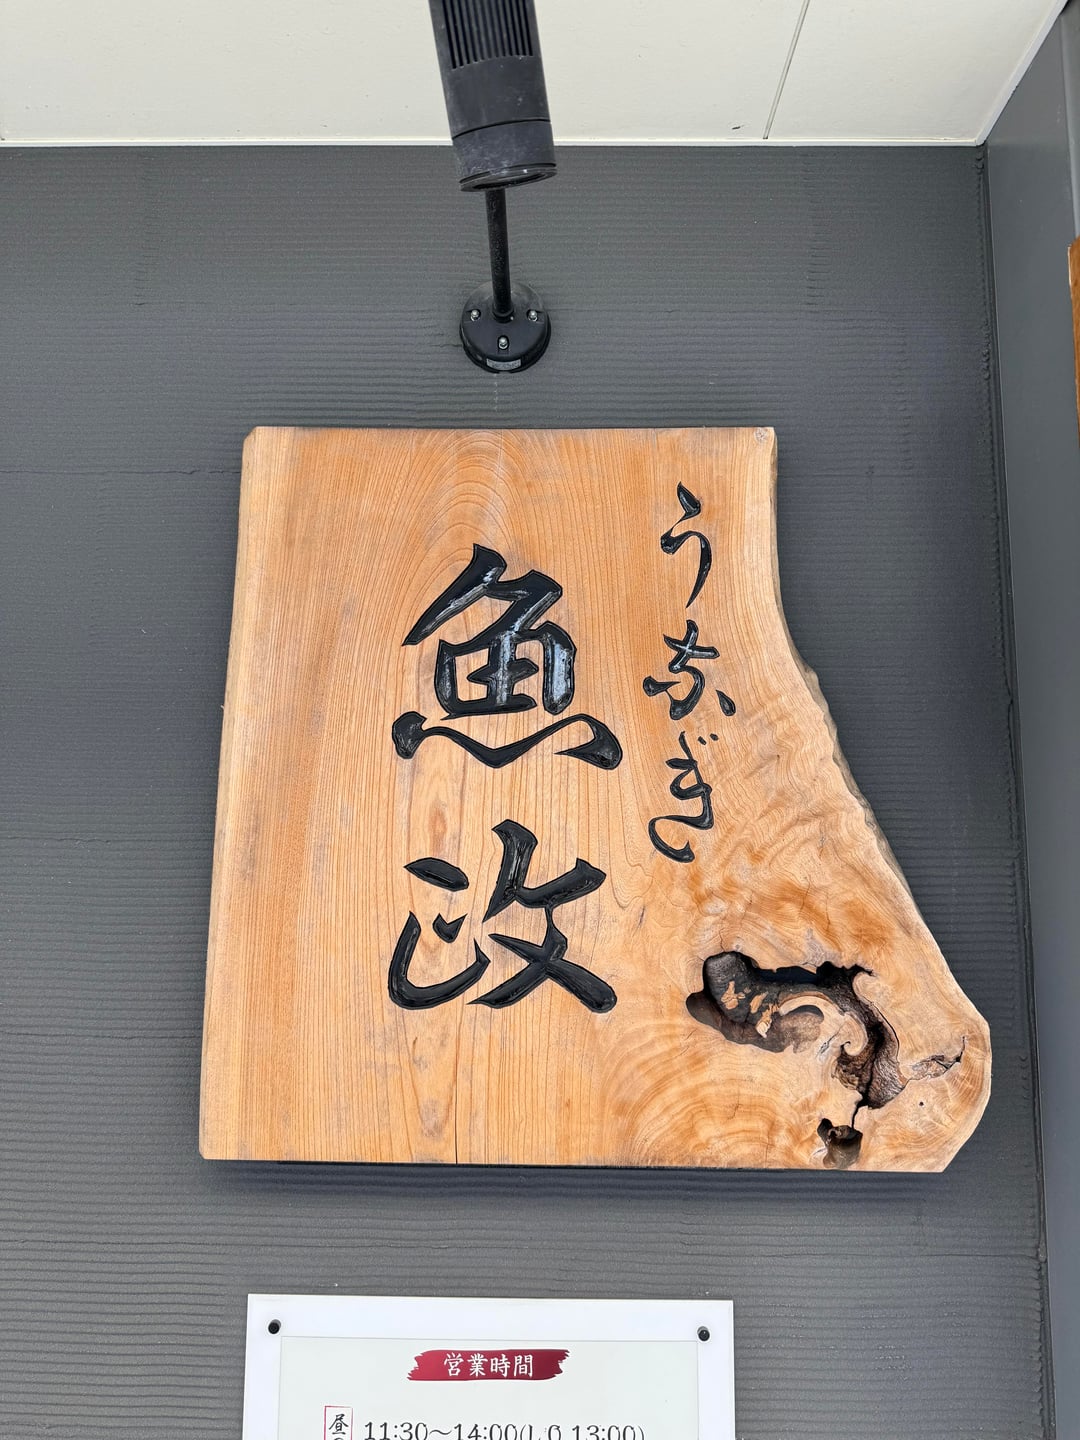 うなぎ
魚政
営業時間
昼の
11:30～14:00(L.O.13:00)